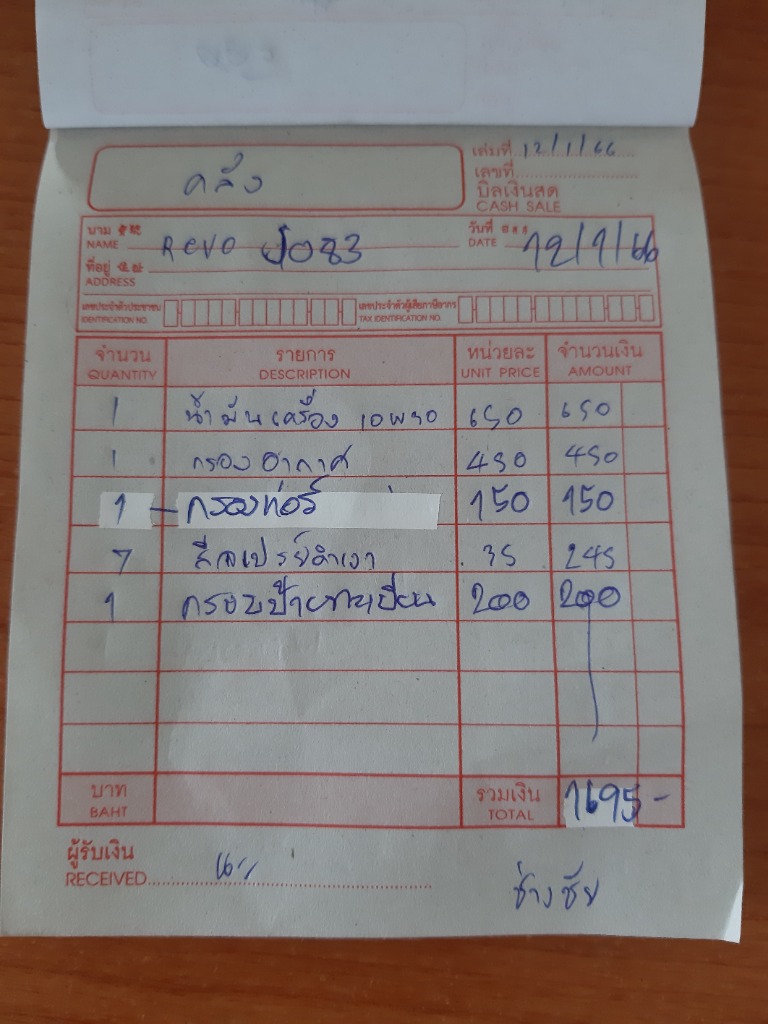 คลัง
เล่มที่ 12/1/66
เลขที่
บิลเงินสด
CASH SALE
นาม
NAME Revo 1083
วันที่
DATE 12/1/66
ที่อยู่
ADDRESS
เลขประจำตัวประชาชน
IDENTIFICATION NO.
เลขประจำตัวผู้เสียภาษีอากร
TAX IDENTIFICATION NO.
จำนวน รายการ หน่วยละ จำนวนเงิน
QUANTITY DESCRIPTION UNIT PRICE AMOUNT
1 น้ำมันเครื่อง 10W30 650 650
1 กรองอากาศ 450 450
1 - กรองแอร์ 150 150
7 สีสเปรย์ดำเงา 35 245
1 กรอบป้ายทะเบียน 200 200
บาท รวมเงิน 1695-
BAHT TOTAL
ผู้รับเงิน
RECEIVED
ช่างชัย